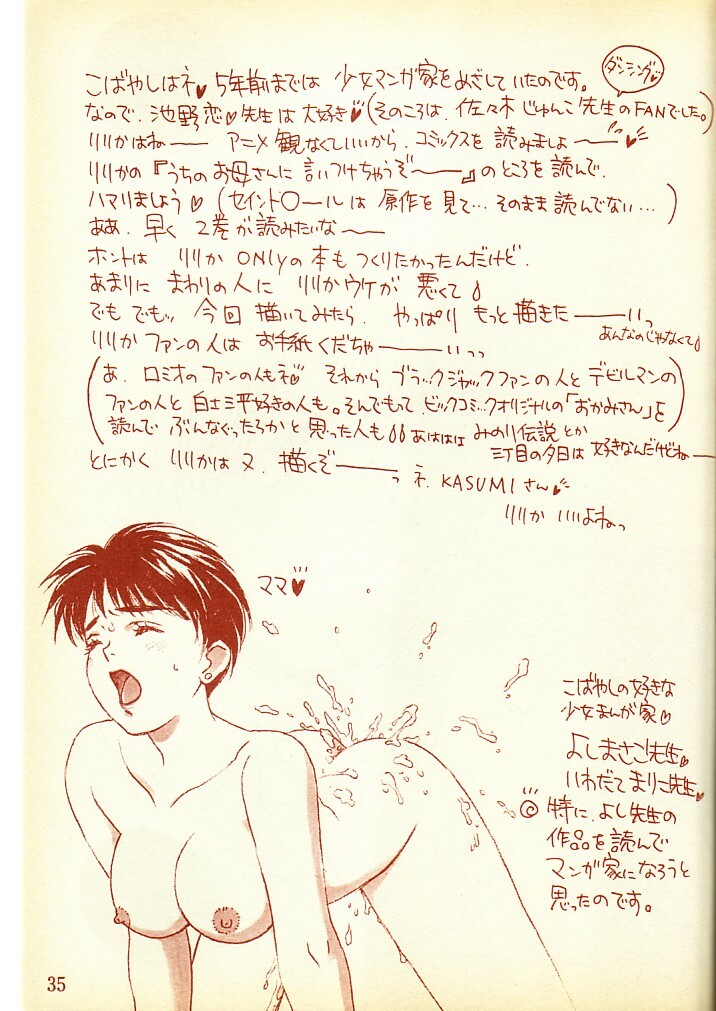 こばやしはネ♥5年前までは 少女マンガ家をめざしていたのです。
ダンシング♥
なので、池野恋♡先生は大好き♥(そのころは、佐々木じゅんこ先生のFANでした。)
りりかはねー アニメ観なくていいから、コミックスを読みましょ〜♥
りりかの『うちのお母さんに言いつけちゃうぞ〜』のところを読んで、
ハマりましょう♡(セイント〇ールは原作を見て…そのまま読んでない…)
ああ、早く2巻が読みたいな〜
ホントは りりかONLyの本もつくりたかったんだけど、
あまりに まわりの人に りりかウケが 悪くて
でもでもッ 今回描いてみたら、やっぱりもっと描きたーいっ
あんなのじゃなくて
りりかファンの人は お手紙くだちゃーいっっ
(あ、ロミオのファンの人もネ♡ それから ブラックジャックファンの人とデビルマンの
ファンの人と 白土三平好きの人も。そんでもって ビックコミックオリジナルの「おかみさん」を
読んで ぶんなぐったろかと思った人も あははは みのり伝説とか
三丁目の夕日は 好きなんだけどねー)
とにかく りりかは又、描くぞーっ ネ、KASUMIさん♥
りりか いいよねっ
ママ♥
こばやしの好きな
少女まんが家♡
よしまさこ先生♥
いわだてまりこ先生♥
◎特に、よし先生の
作品を読んで
マンガ家になろうと
思ったのです。
35